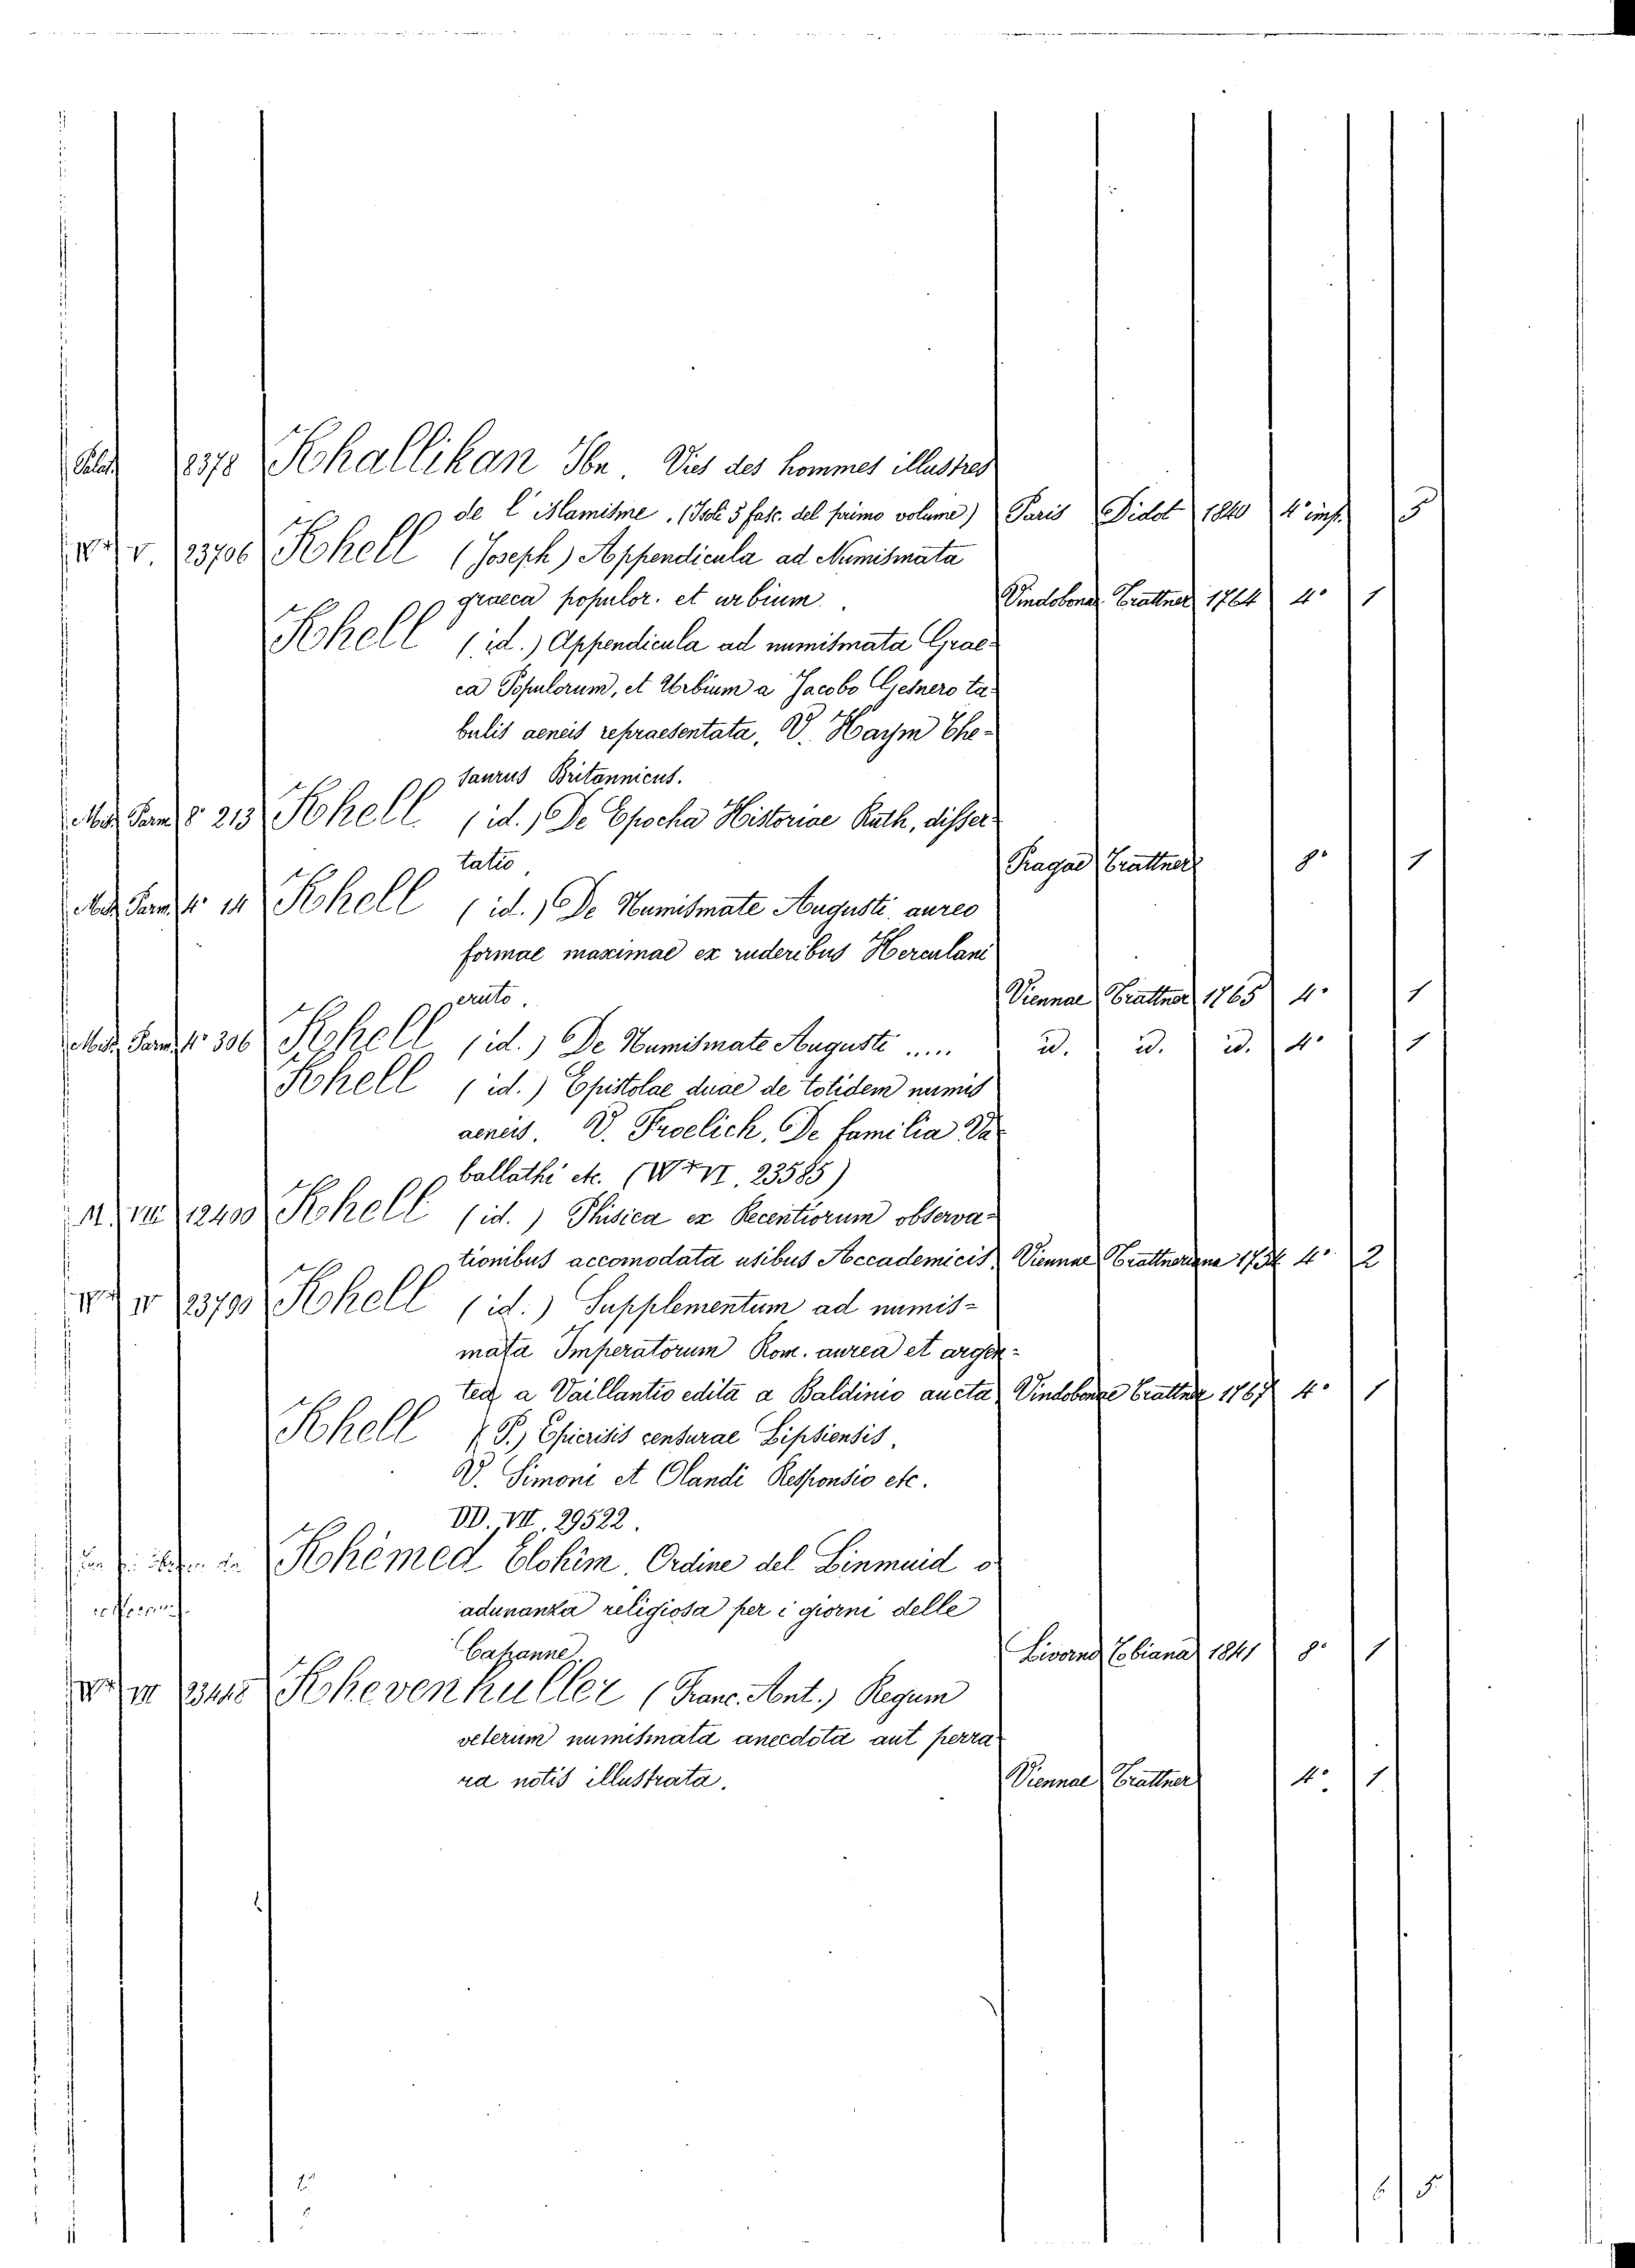 Palat 8378 Khallikan Ibn. Vies des hommes illustres
de l'Islamisme. (Soli 5 fasc. del primo volume) Paris Didot 1840 4° imp. 5
W* V. 23706 Khell (Joseph) Appendicula ad Numismata
graeca populor. et urbium. Vindobonae Trattner 1764 4° 1
Khell (id.) Appendicula ad numismata Grae-
ca Populorum, et Urbium a Jacobo Gesnero ta-
bulis aeneis repraesentata, V. Haym The-
saurus Britannicus.
Misc. Parm. 8° 213 Khell (id.) De Epocha Historiae Ruth, disser-
tatio, Pragae Trattner 8° 1
Misc. Parm. 4° 14 Khell (id.) De Numismate Augusti aureo
formae maximae ex ruderibus Herculani
eruto. Viennae Trattner 1765 4° 1
Misc. Parm. 4° 306 Khell (id.) De Numismate Augusti ..... id. id. id. 4° 1
Khell (id.) Epistolae duae de totidem numis
aeneis. V. Froelich, De familia Va-
ballathi etc. (W* VI. 23585)
M. VIII 12400 Khell (id.) Phisica ex Recentiorum observa-
tionibus accomodata usibus Accademicis. Viennae Trattneriana 1754 4° 2
W* IV 23790 Khell (id.) Supplementum ad numis-
mata Imperatorum Rom. aurea et argen-
tea, a Vaillantio edita a Baldinio aucta, Vindobonae Trattner 1767 4° 1
Khell (P.) Epicrisis censurae Lipsiensis,
V. Simoni et Olandi Responsio etc.
DD. VII. 29522.
Khèmed Elohim. Ordine del Linmuid o
adunanza religiosa per i giorni delle
Capanne. Livorno Tobiana 1841 8° 1
W* III 23448 Khevenhuller (Franc. Ant.) Regum
veterum numismata anecdota aut perra-
ra notis illustrata. Viennae Trattner 4°. 1